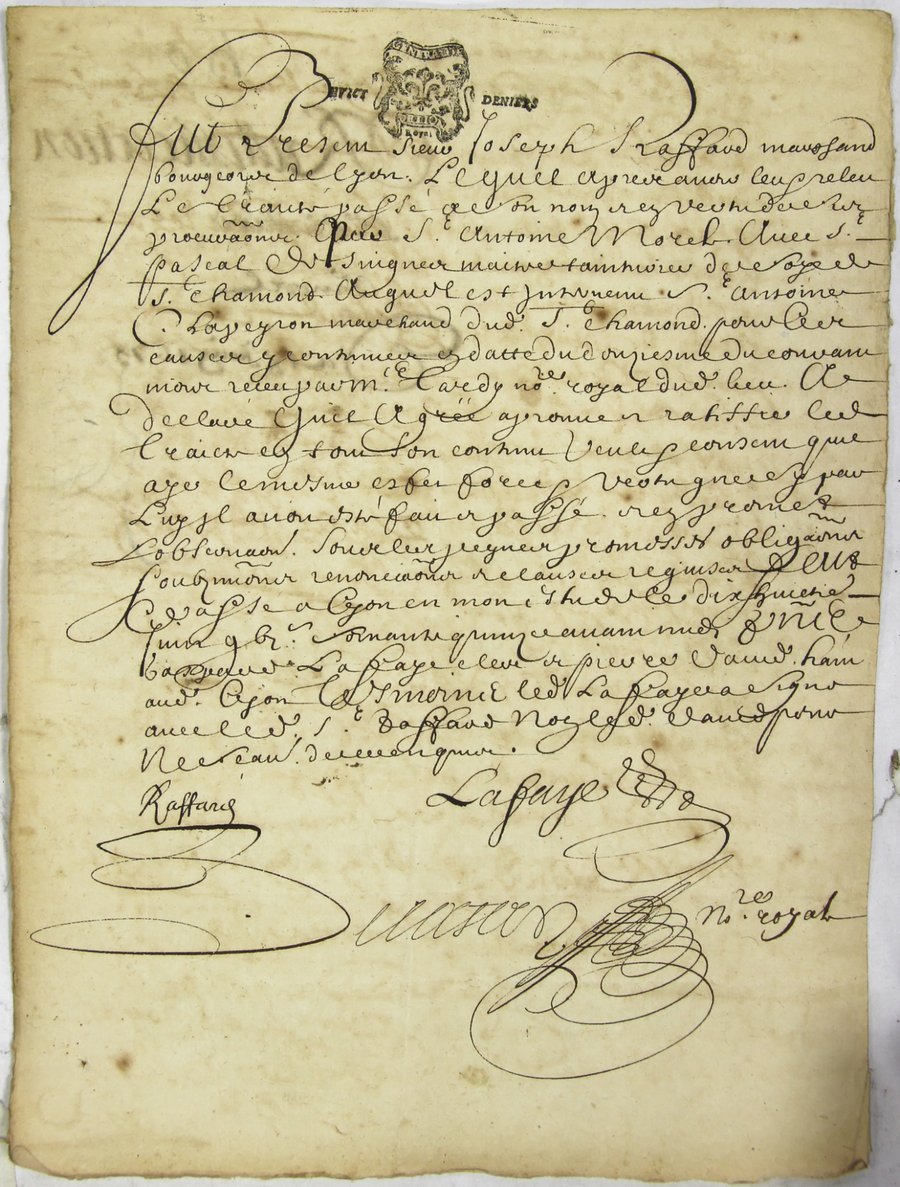 GENERALITE
HUICT DENIERS
Fut Present Sieur Joseph Raffard marchand
bourgeois de Lyon. Lequel apres avoir leu releu
Le traité passé en son nom
Par Sr. Antoine Morel. Avec Sr.
Pascal maitre tainturier de soye de
St. Chamond. Auquel est intervenu Sr. Antoine
Layeyron marchand dud. St. Chamond. pour les
causes y contenues en datte du douziesme du courant
mois receu par Me. Tardy nore. royal dud. lieu. A
declaré qu'il Agrée aprouve et ratiffie led.
traicté en tout son contenu Veult consent que
aye le mesme effet force vertu que si par
Luy il avoit esté fait et passé. et promet
L'observaon. Sous les peynes promesses obligaons
soubmions renonciaons et clauses requises
passé a Lyon en mon estude le dix huictie.
jour 9br. nonante quinze avant midy
Lafaye clerc et pierre David. hab.
aud. Lyon tesmoins led. Lafaye a signé
avec led. Sr. Raffard Non led. David pour
ne sçavoir de ce enquis.
Raffard
Lafaye
Nore. royal